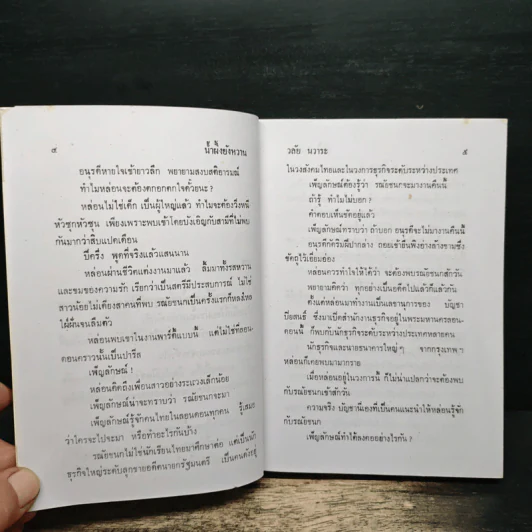 ๔ น้ำผึ้งยังหวาน
อนุรดีหายใจเข้ายาวลึก พยายามสงบสติอารมณ์
ทำไมหล่อนจะต้องตกอกตกใจด้วยนะ ?
หล่อนไม่ใช่เด็ก เป็นผู้ใหญ่แล้ว ทำไมจะต้องวิ่งหนี
หัวซุกหัวซุน เพียงเพราะพบเข้าโดยบังเอิญกับสามีที่ไม่พบ
กันมากว่าสิบแปดเดือน
ปีครึ่ง พูดที่จริงแล้วแสนนาน
หล่อนผ่านชีวิตแต่งงานมาแล้ว ลิ้มมาทั้งรสหวาน
และขมของความรัก เรียกว่าเป็นสตรีมีประสบการณ์ ไม่ใช่
สาวน้อยไม่เดียงสาคนที่พบ รณัยชนกเป็นครั้งแรกก็หลงใหล
ใฝ่ฝันจนลืมตัว
หล่อนพบเขาในงานพาร์ตี้แบบนี้ แต่ไม่ใช่ที่ลอน-
ดอนคราวนั้นเป็นปารีส
เพ็ญลักษณ์ !
หล่อนคิดถึงเพื่อนสาวอย่างระแวงเล็กน้อย
เพ็ญลักษณ์น่าจะทราบว่า รณัยชนกจะมา
เพ็ญลักษณ์รู้จักคนไทยในลอนดอนทุกคน รู้เสมอ
ว่าใครจะไปจะมา หรือทำอะไรกันบ้าง
รณัยชนกไม่ใช่นักเรียนไทยมาศึกษาต่อ แต่เป็นนัก
ธุรกิจใหญ่ระดับลูกชายอดีตนายกรัฐมนตรี เป็นคนดังอยู่
วลัย นวาระ ๕
ในวงสังคมไทยและในวงการธุรกิจระดับระหว่างประเทศ
เพ็ญลักษณ์ต้องรู้ว่า รณัยชนกจะมางานคืนนี้
ถ้ารู้ ทำไมไม่บอก ?
คำตอบเห็นชัดอยู่แล้ว
เพ็ญลักษณ์ทราบว่า ถ้าบอก อนุรดีจะไม่มางานคืนนี้
อนุรดีกัดริมฝีปากล่าง ถอยเข้ายืนพิงข้างล่างชามซึ่ง
จัดดูไว้เยี่ยมฮ่อง
หล่อนควรทำใจให้ได้ว่า จะต้องพบรณัยชนกสักวัน
พยายามคิดว่า ทุกอย่างเป็นอดีตไปแล้วก็แล้วกัน
ตั้งแต่หล่อนมาทำงานเป็นเลขานุการของ บัญชา
ปิยสนธิ์ ซึ่งมาเปิดสำนักงานธุรกิจอยู่ในพระมหานครลอน-
ดอนนี้ ก็พบกับนักธุรกิจระดับระหว่างประเทศหลายคน
นักธุรกิจและนายธนาคารใหญ่ ๆ จากกรุงเทพ ฯ
หล่อนก็เคยพบมามากราย
เมื่อหล่อนอยู่ในวงการนี้ ก็ไม่น่าแปลกว่าจะต้องพบ
กับรณัยชนกเข้าสักวัน
ความจริง บัญชานี่เองที่เป็นคนแนะนำให้หล่อนรู้จัก
กับรณัยชนก
เพ็ญลักษณ์ทำได้ลงคออย่างไรกัน ?